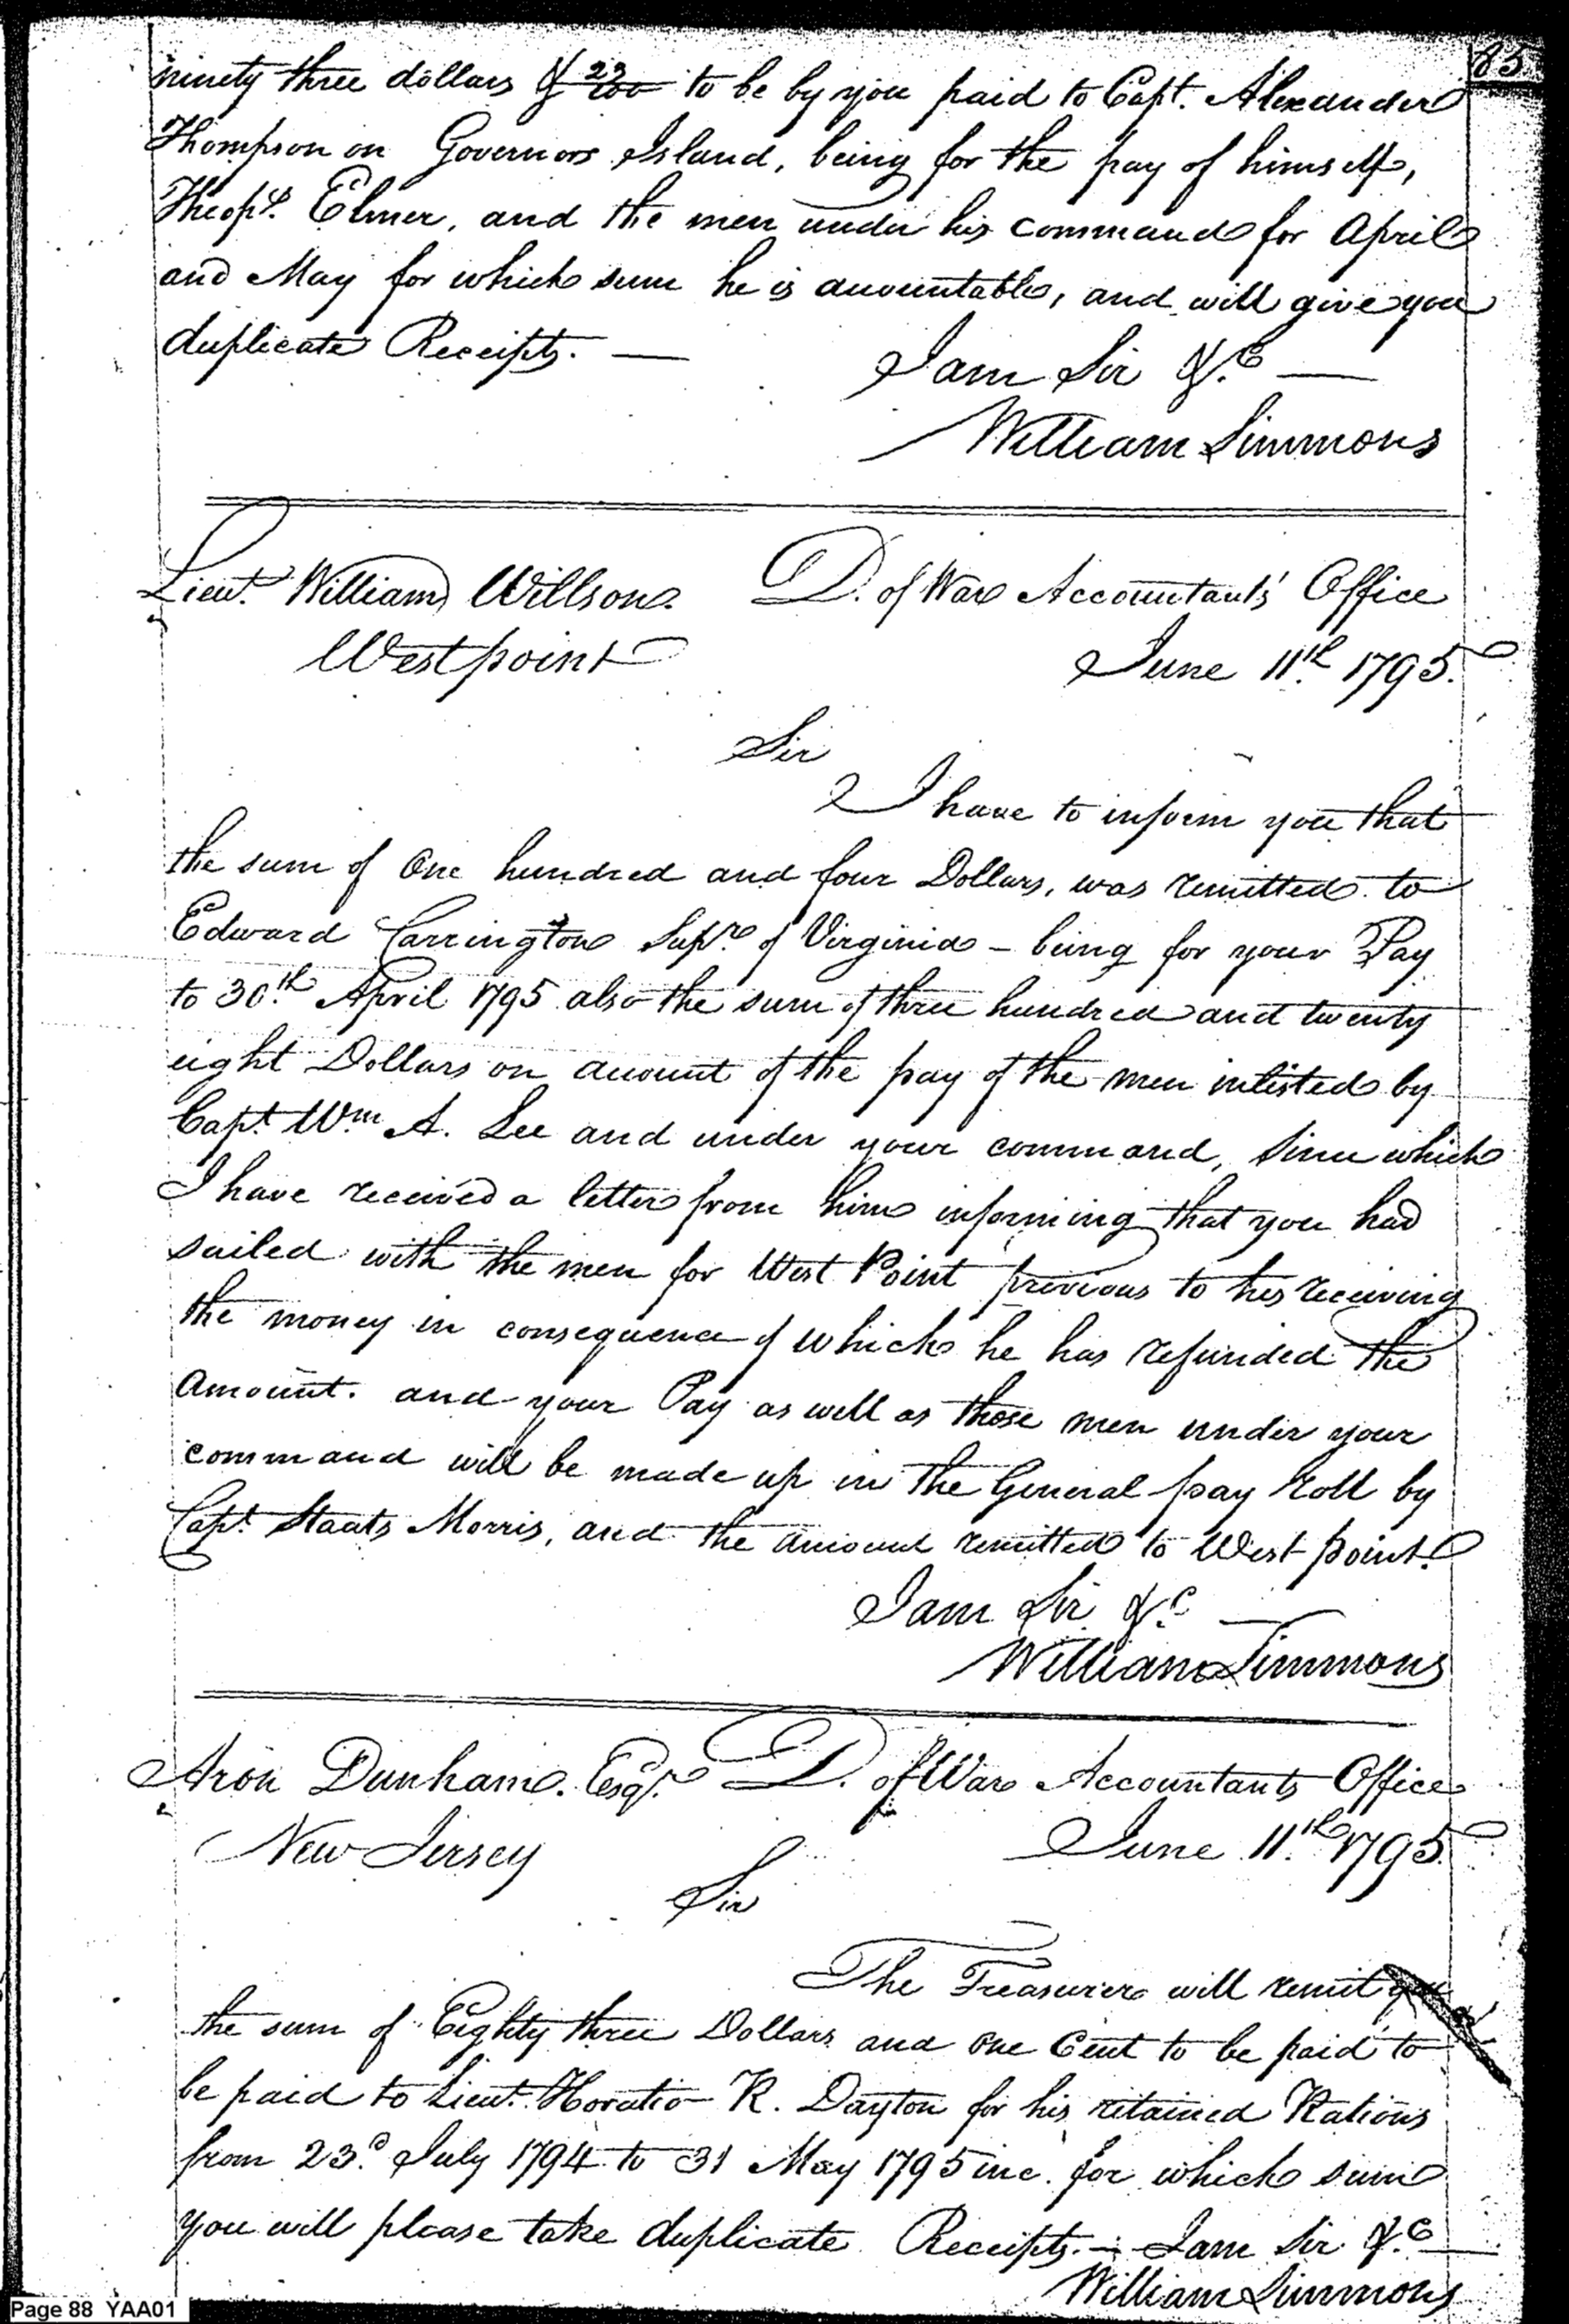 85
ninety three dollars & 23/100 to be by you paid to Capt. Alexander
Thompson on Governors Island, being for the pay of himself,
Theops. Elmer, and the men under his command for April
and May for which sum he is accountable, and will give you
duplicate Receipts. —
I am Sir &c —
William Simmons
Lieut. William Willson. D. of War Accountants' Office
Westpoint June 11th 1795.
Sir
I have to inform you that
the sum of One hundred and four Dollars, was remitted to
Edward Carrington Supr. of Virginia – being for your Pay
to 30th April 1795 also the sum of three hundred and twenty
eight Dollars on account of the pay of the men inlisted by
Capt. Wm. A. Lee and under your command, Since which
I have received a letter from him informing that you had
sailed with the men for West Point previous to his receiving
the money in consequence of which he has refunded the
amount. and your Pay as well as those men under your
command will be made up in the General pay Roll by
Capt. Staats Morris, and the amount remitted to West point.
I am Sir &c. —
William Simmons
Aron Dunham. Esqr. D. of War Accountants Office
New Jersey June 11th 1795.
Sir
The Treasurer will remit you
the sum of Eighty three Dollars and One Cent to be paid to
be paid to Lieut. Horatio R. Dayton for his retained Rations
from 23d. July 1794 to 31 May 1795 inc. for which sum
you will please take duplicate Receipts. — I am Sir &c —
William Simmons
Page 88 YAA01